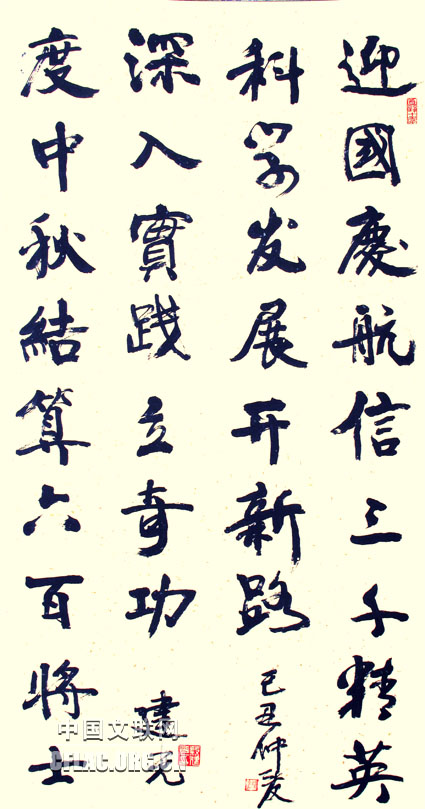 迎國慶航信三千精英
科学发展开新路
己丑仲夏
度中秋結算六百將士
深入實践立奇功
建元
中国文联网
CFLAC.ORG.CN